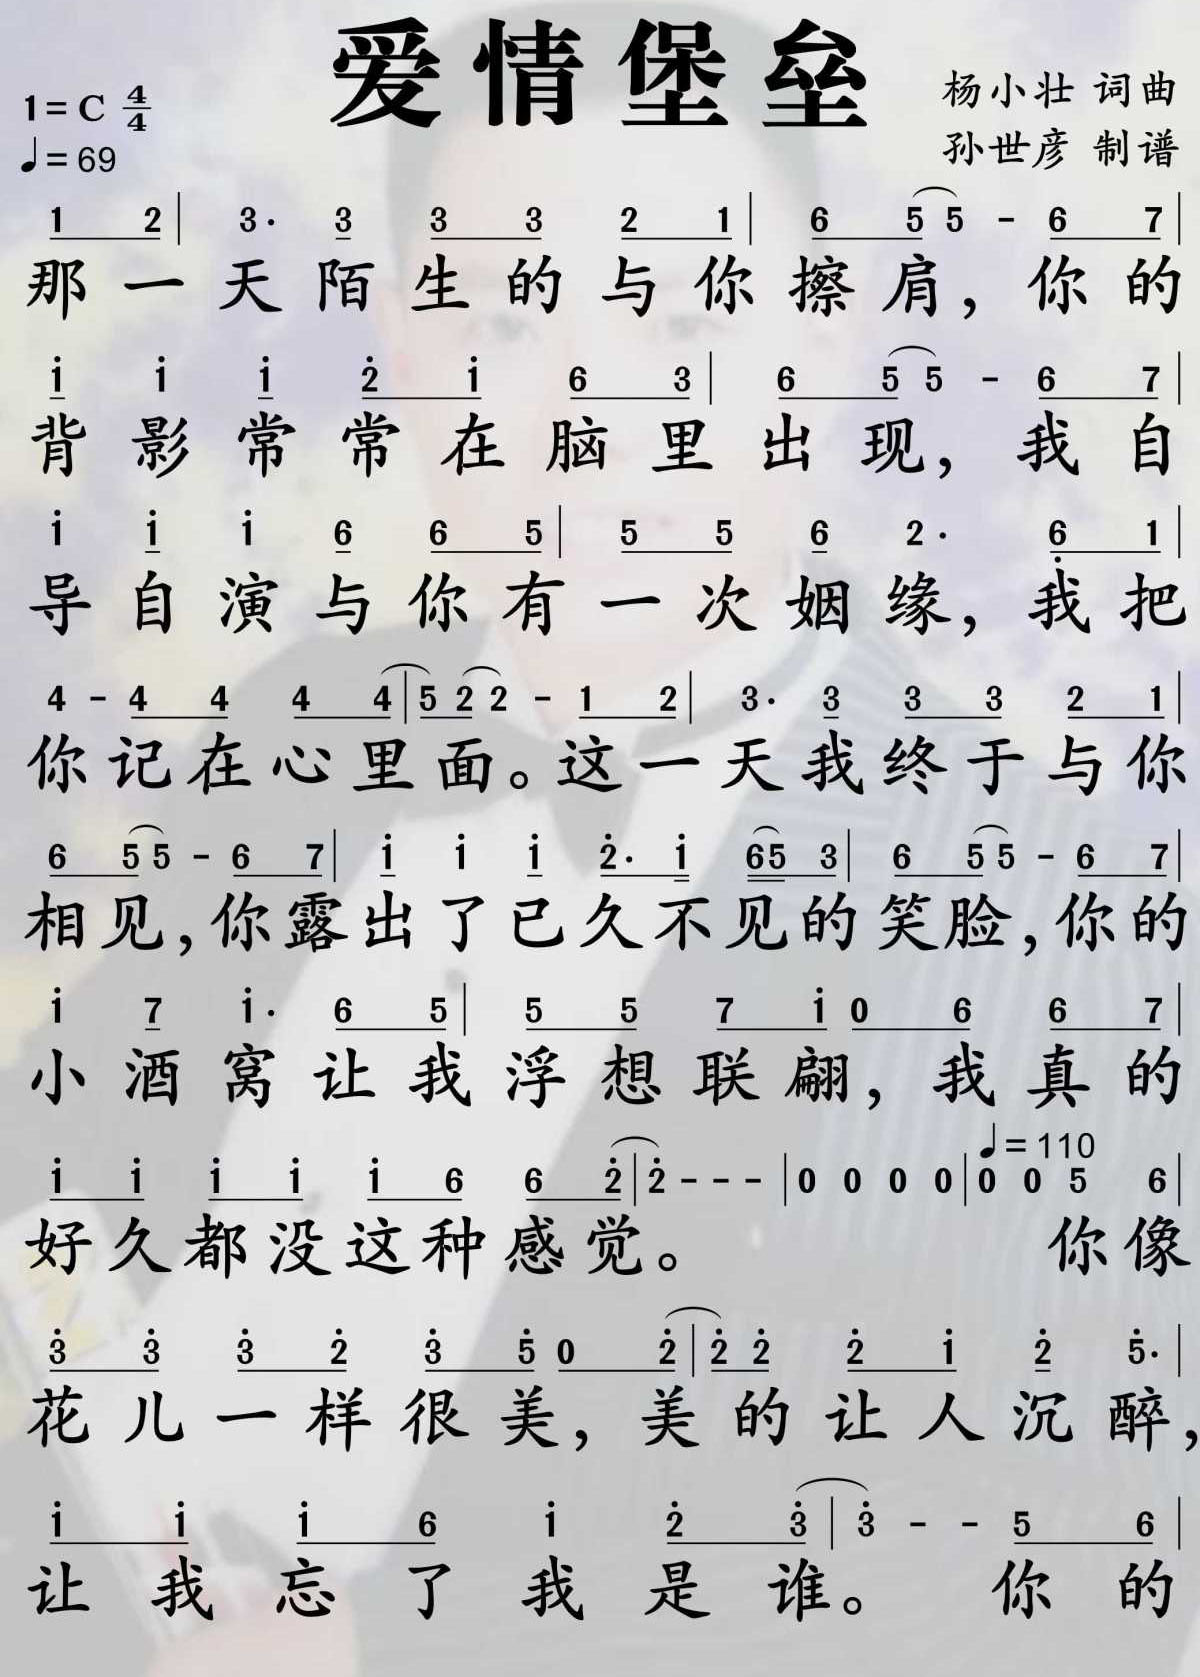 爱情堡垒
1=C 4/4
♩=69
杨小壮 词曲
孙世彦 制谱
1 2 | 3· 3 3 3 2 1 | 6 5 5 - 6 7 |
那一天陌生的与你擦肩，你的
i i i 2̇ i 6 3 | 6 5 5 - 6 7 |
背影常常在脑里出现，我自
i i i 6 6 5 | 5 5 6 2· 6̣ 1 |
导自演与你有一次姻缘，我把
4 - 4 4 4 4 | 5 2 2 - 1 2 | 3· 3 3 3 2 1 |
你记在心里面。这一天我终于与你
6 5 5 - 6 7 | i i i 2̇· i 6 5 3 | 6 5 5 - 6 7 |
相见，你露出了已久不见的笑脸，你的
i 7 i· 6 5 | 5 5 7 i 0 6 6 7 |
小酒窝让我浮想联翩，我真的
♩=110
i i i i i 6 6 2̇ | 2̇ - - - | 0 0 0 0 | 0 0 5 6 |
好久都没这种感觉。 你像
3̇ 3̇ 3̇ 2̇ 3̇ 5̇ 0 2̇ | 2̇ 2̇ 2̇ i 2̇ 5̇· |
花儿一样很美，美的让人沉醉，
i i i 6 i 2̇ 3̇ | 3̇ - - 5 6 |
让我忘了我是谁。 你的